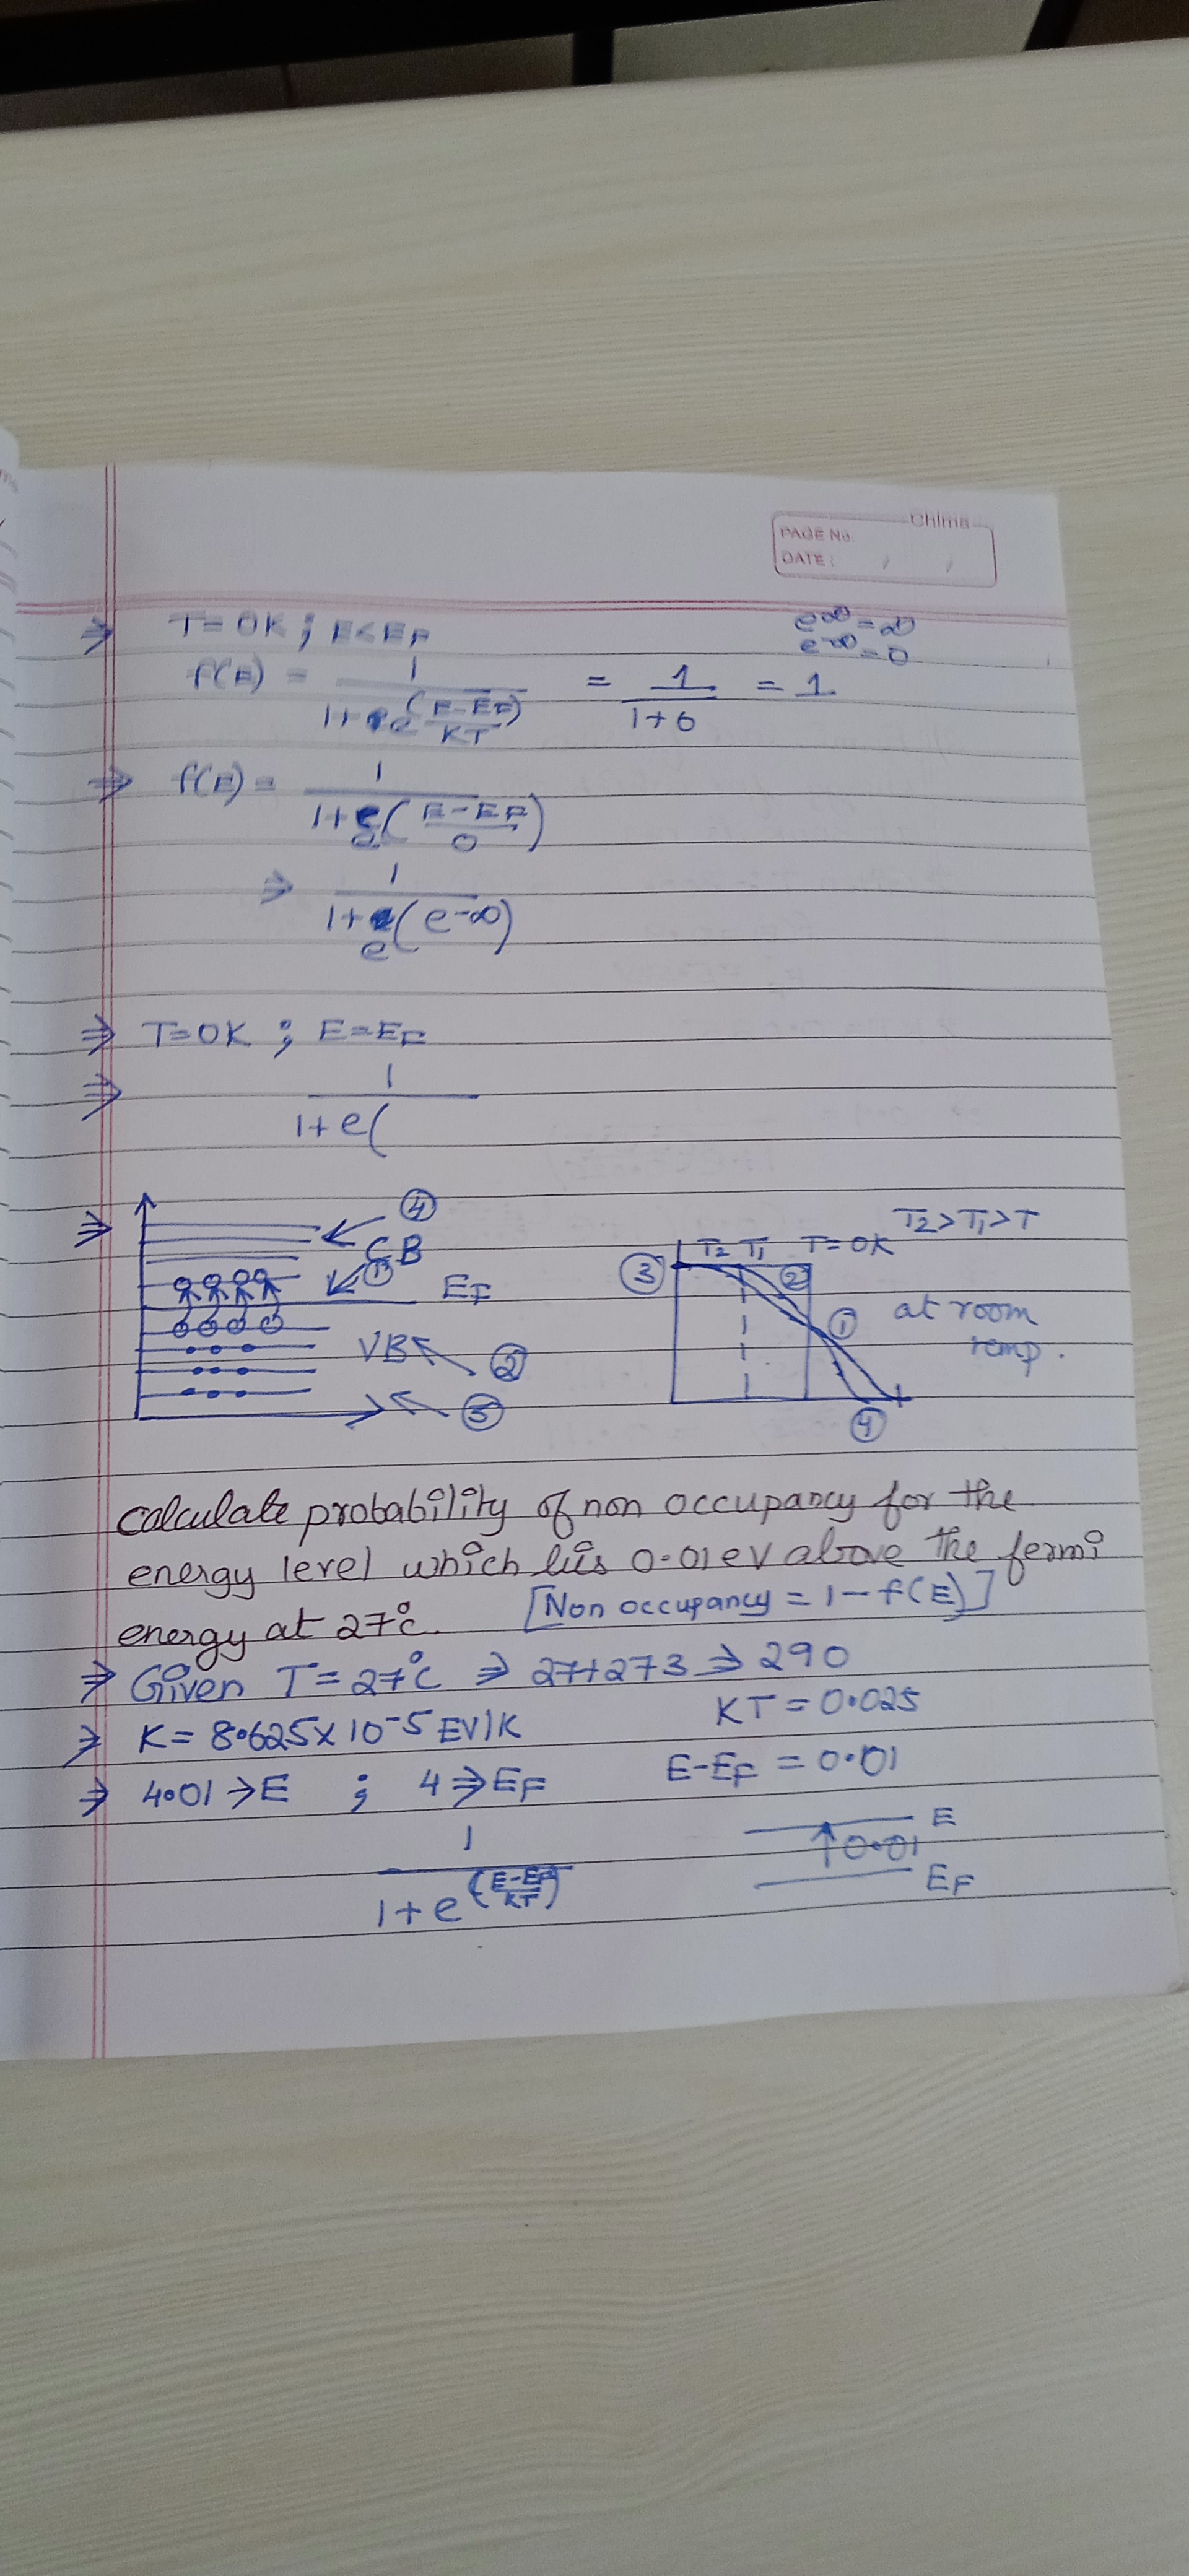 Chlma
PAGE No.
DATE: / /
⇒ T=0K ; E<EF
e^∞=∞
e^-∞=0
f(E) = 1/(1+e^((E-EF)/KT)) = 1/(1+0) = 1
⇒ f(E)= 1/(1+e((E-EF)/0))
⇒ 1/(1+e(e-∞))
⇒ T=0K ; E=EF
⇒ 1/(1+e(
⇒ ④
CB
① EF
VB ②
⑤
T2>T1>T
T2 T1 T=0K
③ ②
① at room
temp.
④
calculate probability of non occupancy for the
energy level which lies 0.01eV above the fermi
energy at 27°C. [Non occupancy = 1-f(E)]
⇒ Given T=27°C ⇒ 27+273 ⇒ 290
⇒ K= 8.625×10-5 EV/K KT=0.025
⇒ 4.01→E ; 4⇒EF E-EF =0.01
1/(1+e^((E-EF)/KT))
E
↑0.01
EF